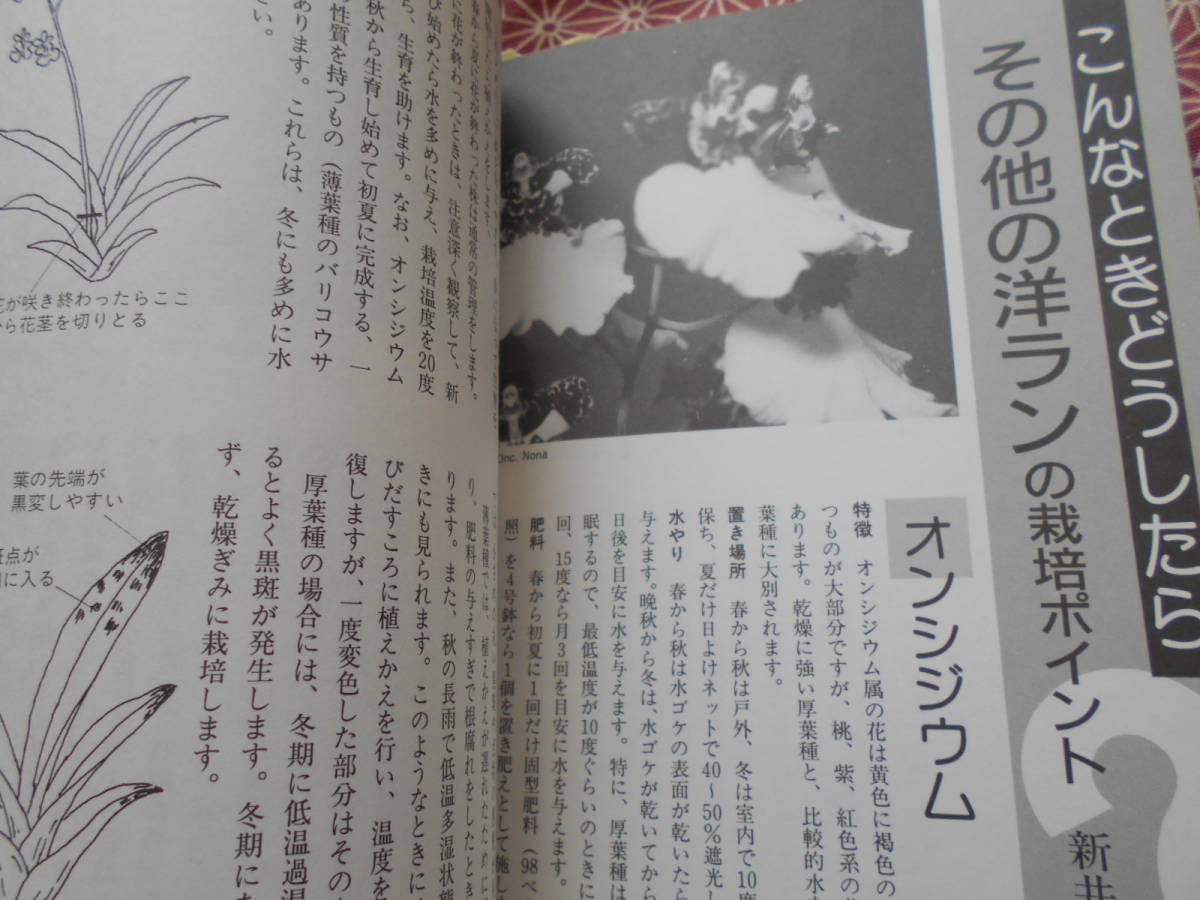 こんなときどうしたら
その他の洋ランの栽培ポイント
新井
Onc. Nona
オンシジウム
特徴 オンシジウム属の花は黄色に褐色の
つものが大部分ですが、桃、紫、紅色系の
あります。乾燥に強い厚葉種と、比較的水
葉種に大別されます。
置き場所 春から秋は戸外、冬は室内で10度
保ち、夏だけ日よけネットで40～50％遮光し
水やり 春から秋は水ゴケの表面が乾いたら
与えます。晩秋から冬は、水ゴケが乾いてから
日後を目安に水を与えます。特に、厚葉種は
眠するので、最低温度が10度ぐらいのときに
回、15度なら月3回を目安に水を与えます。
肥料 春から初夏に1回だけ固型肥料（98ペ
照）を4号鉢なら1個を置き肥えとして施し
に花が終わった株は通常の管理をします。
に花が終わったときは、注意深く観察して、新
び始めたら水を多めに与え、栽培温度を20度
ら、生育を助けます。なお、オンシジウム
秋から生育し始めて初夏に完成する、一
性質を持つもの（薄葉種のバリコウサ
あります。これらは、冬にも多めに水
さい。
が咲き終わったらここ
から花茎を切りとる
薄葉種では、植えかえが遅れたために
り、肥料の与えすぎで根腐れをしたとき
ります。また、秋の長雨で低温多湿状態
きにも見られます。このようなときに
びだすころに植えかえを行い、温度を
復しますが、一度変色した部分はその
厚葉種の場合には、冬期に低温過湿
るとよく黒斑が発生します。冬期に
ず、乾燥ぎみに栽培します。
葉の先端が
黒変しやすい
斑点が
に入る